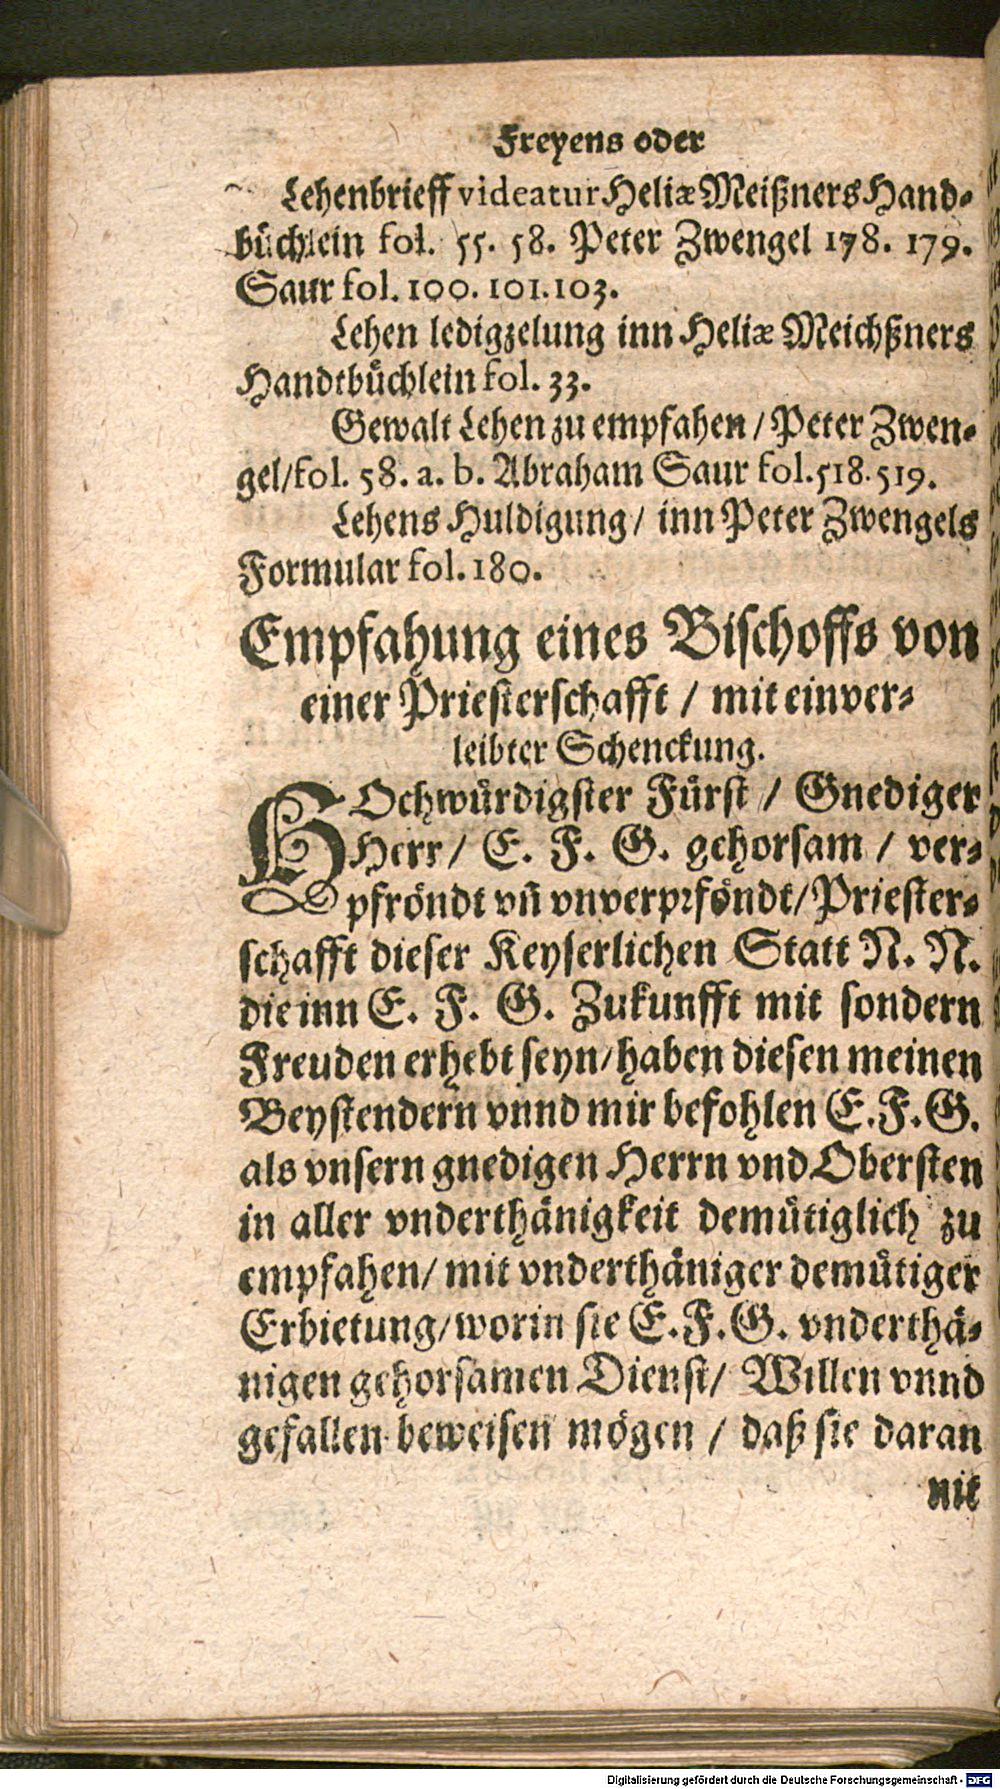 Freyens oder
Lehenbrieff videatur Heliæ Meißners Hand-
büchlein fol. 55. 58. Peter Zwengel 178. 179.
Saur fol. 100. 101. 103.
Lehen ledigzelung inn Heliæ Meichßners
Handtbüchlein fol. 33.
Gewalt Lehen zu empfahen / Peter Zwen-
gel/fol. 58. a. b. Abraham Saur fol. 518. 519.
Lehens Huldigung / inn Peter Zwengels
Formular fol. 180.
Empfahung eines Bischoffs von
einer Priesterschafft / mit einver-
leibter Schenckung.
HOchwürdigster Fürst / Gnediger
Herr / E. F. G. gehorsam / ver-
pfröndt vñ vnverprföndt / Priester-
schafft dieser Keyserlichen Statt N. N.
die inn E. F. G. Zukunfft mit sondern
Freuden erhebt seyn / haben diesen meinen
Beystendern vnnd mir befohlen E. F. G.
als vnsern gnedigen Herrn vnd Obersten
in aller vnderthänigkeit demütiglich zu
empfahen / mit vnderthäniger demütiger
Erbietung / worin sie E. F. G. vnderthä-
nigen gehorsamen Dienst / Willen vnnd
gefallen beweisen mögen / daß sie daran
nit
Digitalisierung gefördert durch die Deutsche Forschungsgemeinschaft - DFG